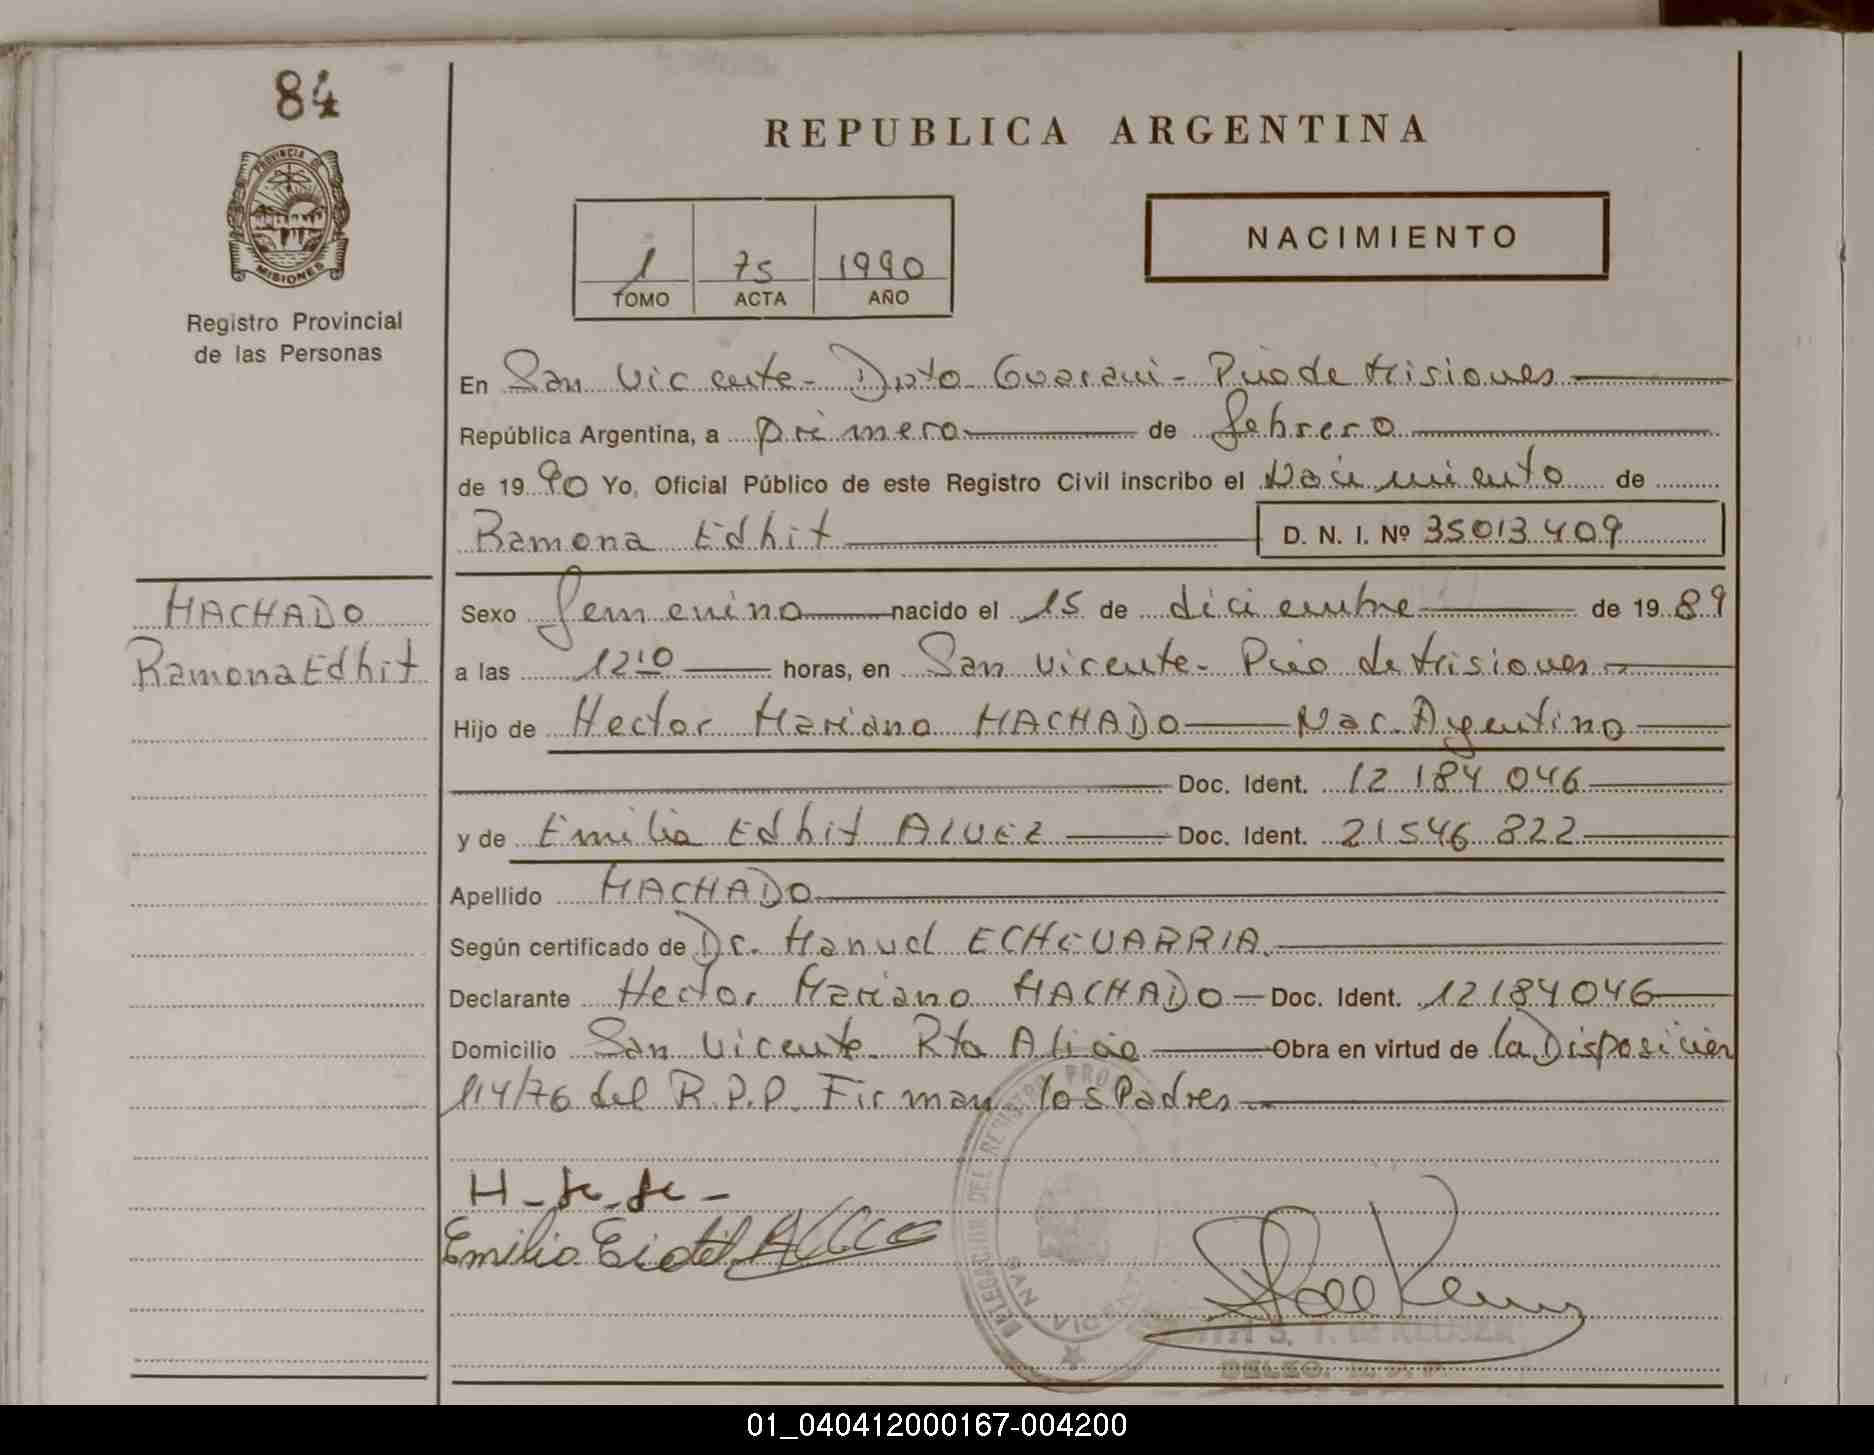 84
PROVINCIA DE
MISIONES
Registro Provincial
de las Personas
REPUBLICA ARGENTINA
1 75 1990
TOMO ACTA AÑO
NACIMIENTO
En San Vicente - Dpto Guarani - Pcia de Misiones
República Argentina, a primero de febrero
de 19 90 Yo, Oficial Público de este Registro Civil inscribo el Nacimiento de
Ramona Edhit D. N. I. Nº 35013409
MACHADO
Ramona Edhit
Sexo femenino nacido el 15 de diciembre de 19 89
a las 12:10 horas, en San Vicente - Pcia de Misiones
Hijo de Hector Mariano MACHADO Nac. Argentino
Doc. Ident. 12 184 046
y de Emilia Edhit ALVEZ Doc. Ident. 21546 822
Apellido MACHADO
Según certificado de Dr. Manuel ECHEVARRIA
Declarante Hector Mariano MACHADO Doc. Ident. 12184046
Domicilio San Vicente Rta Alicia Obra en virtud de la Disposición
114/76 del R.P.P. Firman los Padres
H - M - M -
Emilia
DELEGACION DEL REGISTRO PRO
01_040412000167-004200